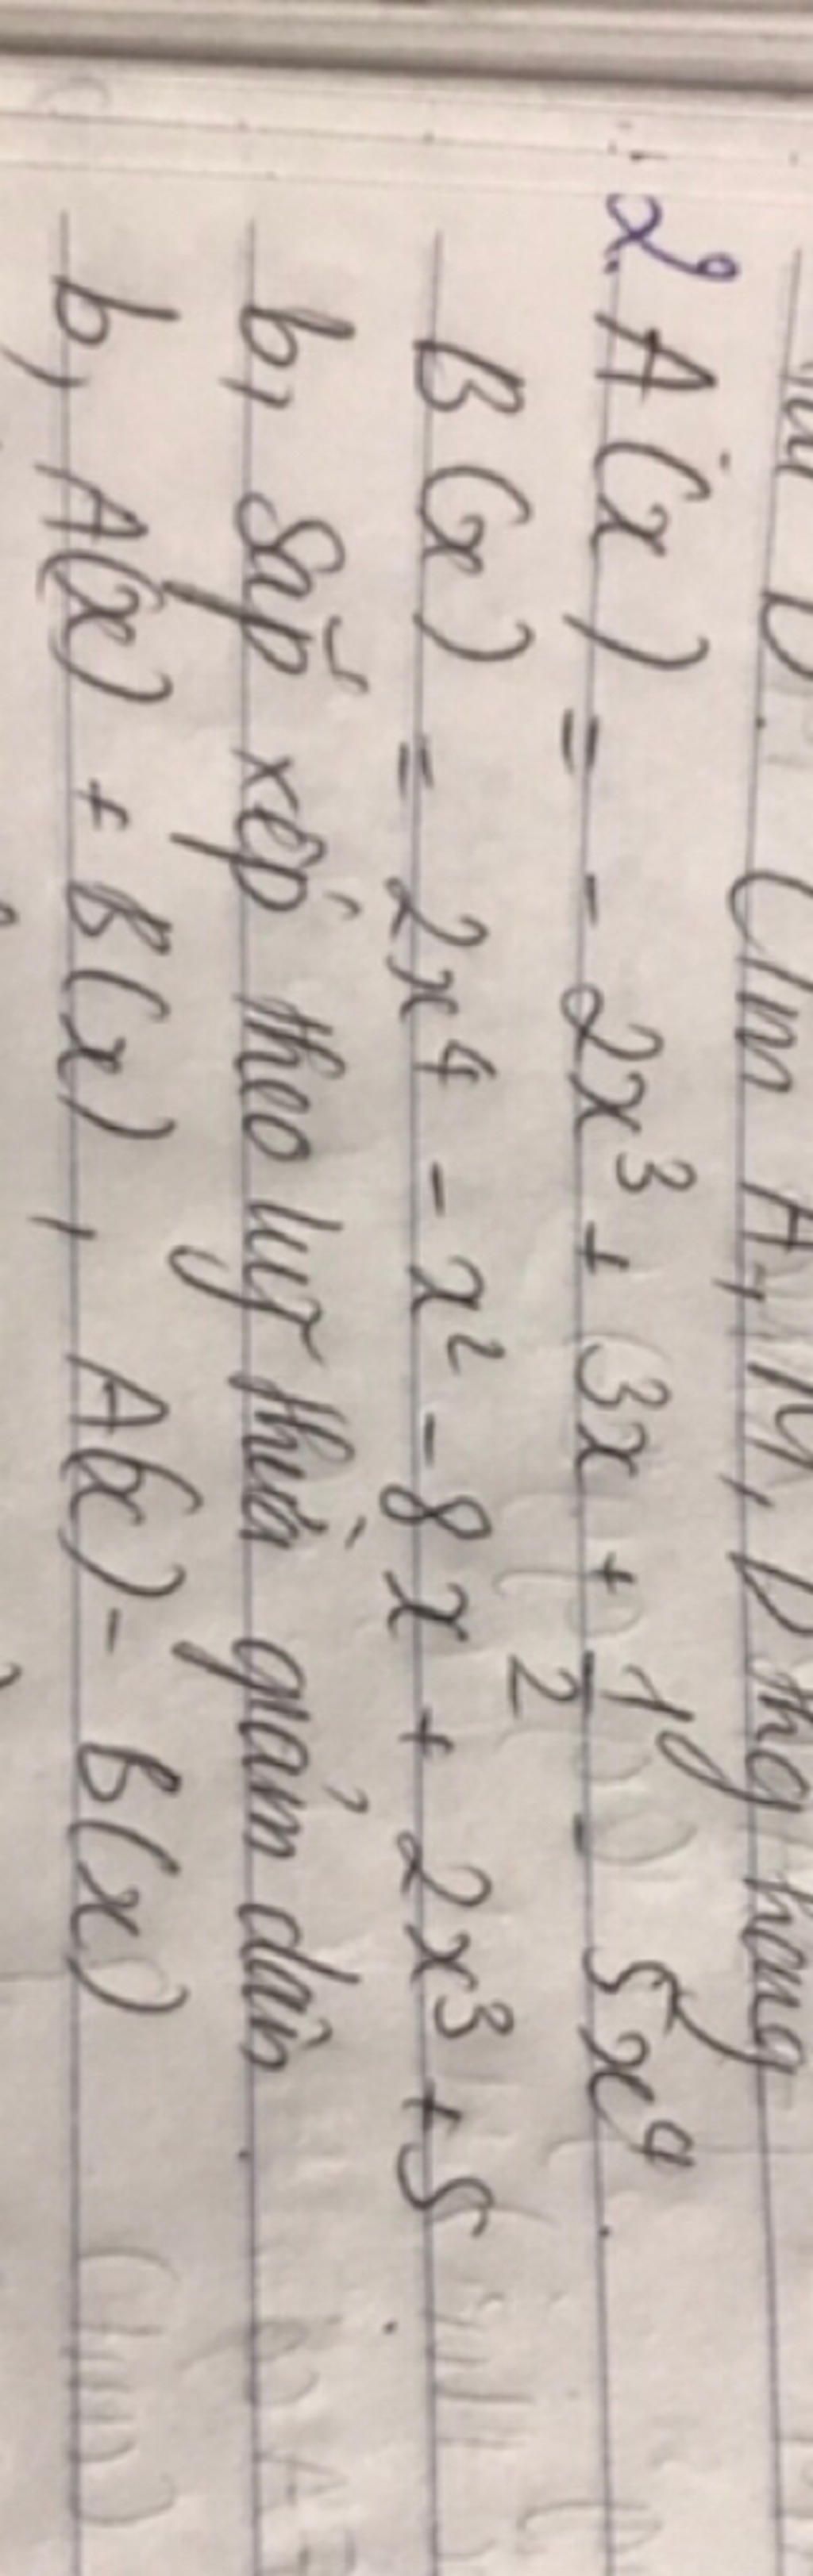 D. Cm A, M, D thg hàng
2. A(x) = - 2x³ + 3x + 1/2 - 5x⁴.
B(x) = 2x⁴ - x² - 8x + 2x³ + 5
b, Sắp xếp theo luỹ thừa giảm dần.
b, A(x) + B(x), A(x) - B(x)